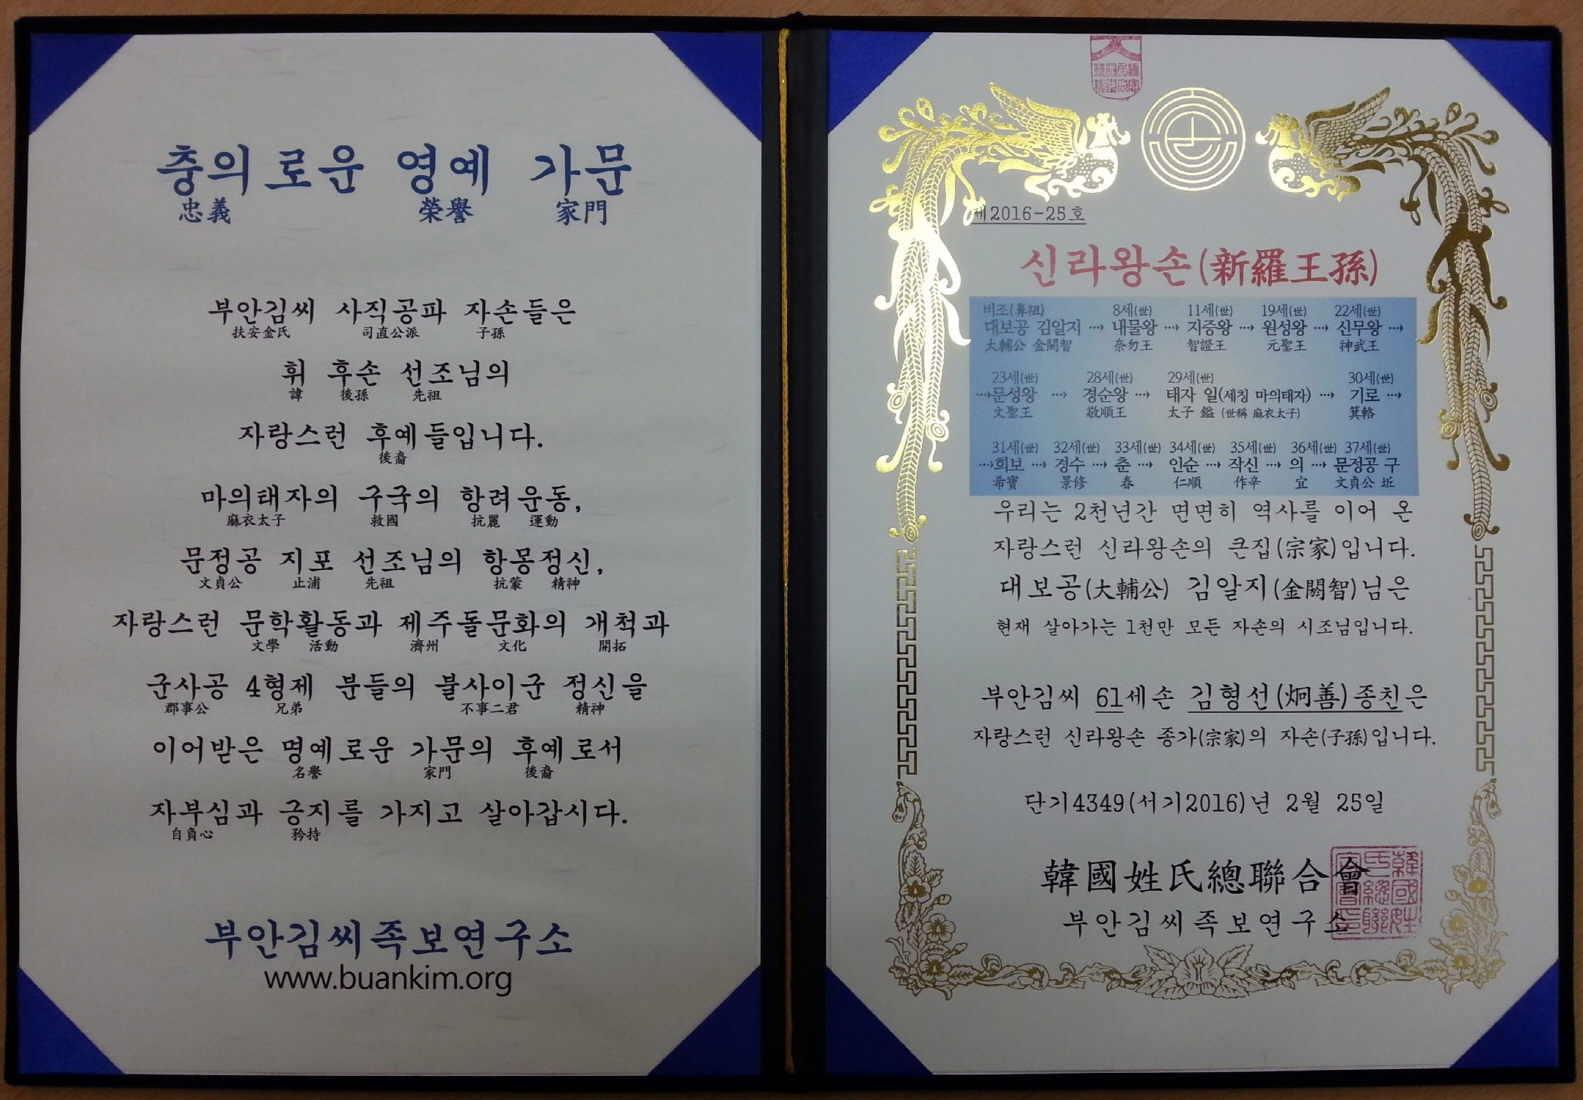 충의로운 영예 가문
忠義 榮譽 家門
부안김씨 사직공파 자손들은
扶安金氏 司直公派 子孫
휘 후손 선조님의
諱 後孫 先祖
자랑스런 후예들입니다.
後裔
마의태자의 구국의 항려운동,
麻衣太子 救國 抗麗 運動
문정공 지포 선조님의 항몽정신,
文貞公 止浦 先祖 抗蒙 精神
자랑스런 문학활동과 제주돌문화의 개척과
文學 活動 濟州 文化 開拓
군사공 4형제 분들의 불사이군 정신을
郡事公 兄弟 不事二君 精神
이어받은 명예로운 가문의 후예로서
名譽 家門 後裔
자부심과 긍지를 가지고 살아갑시다.
自負心 矜持
부안김씨족보연구소
www.buankim.org
제2016-25호
신라왕손(新羅王孫)
비조(鼻祖) 8세(世) 11세(世) 19세(世) 22세(世)
대보공 김알지 ···→ 내물왕 ···→ 지증왕 ···→ 원성왕 ···→ 신무왕 ···→
大輔公 金閼智 奈勿王 智證王 元聖王 神武王
23세(世) 28세(世) 29세(世) 30세(世)
···→문성왕 ···→ 경순왕 ···→ 태자 일(세칭 마의태자) ···→ 기로 ···→
文聖王 敬順王 太子 鎰 (世稱 麻衣太子) 箕輅
31세(世) 32세(世) 33세(世) 34세(世) 35세(世) 36세(世) 37세(世)
···→희보 ···→ 경수 ···→ 춘 ···→ 인순 ···→ 작신 ···→ 의 ···→ 문정공 구
希寶 景修 春 仁順 作辛 宜 文貞公 坵
우리는 2천년간 면면히 역사를 이어 온
자랑스런 신라왕손의 큰집(宗家)입니다.
대보공(大輔公) 김알지(金閼智)님은
현재 살아가는 1천만 모든 자손의 시조님입니다.
부안김씨 61세손 김형선(炯善)종친은
자랑스런 신라왕손 종가(宗家)의 자손(子孫)입니다.
단기4349(서기2016)년 2월 25일
韓國姓氏總聯合會
부안김씨족보연구소